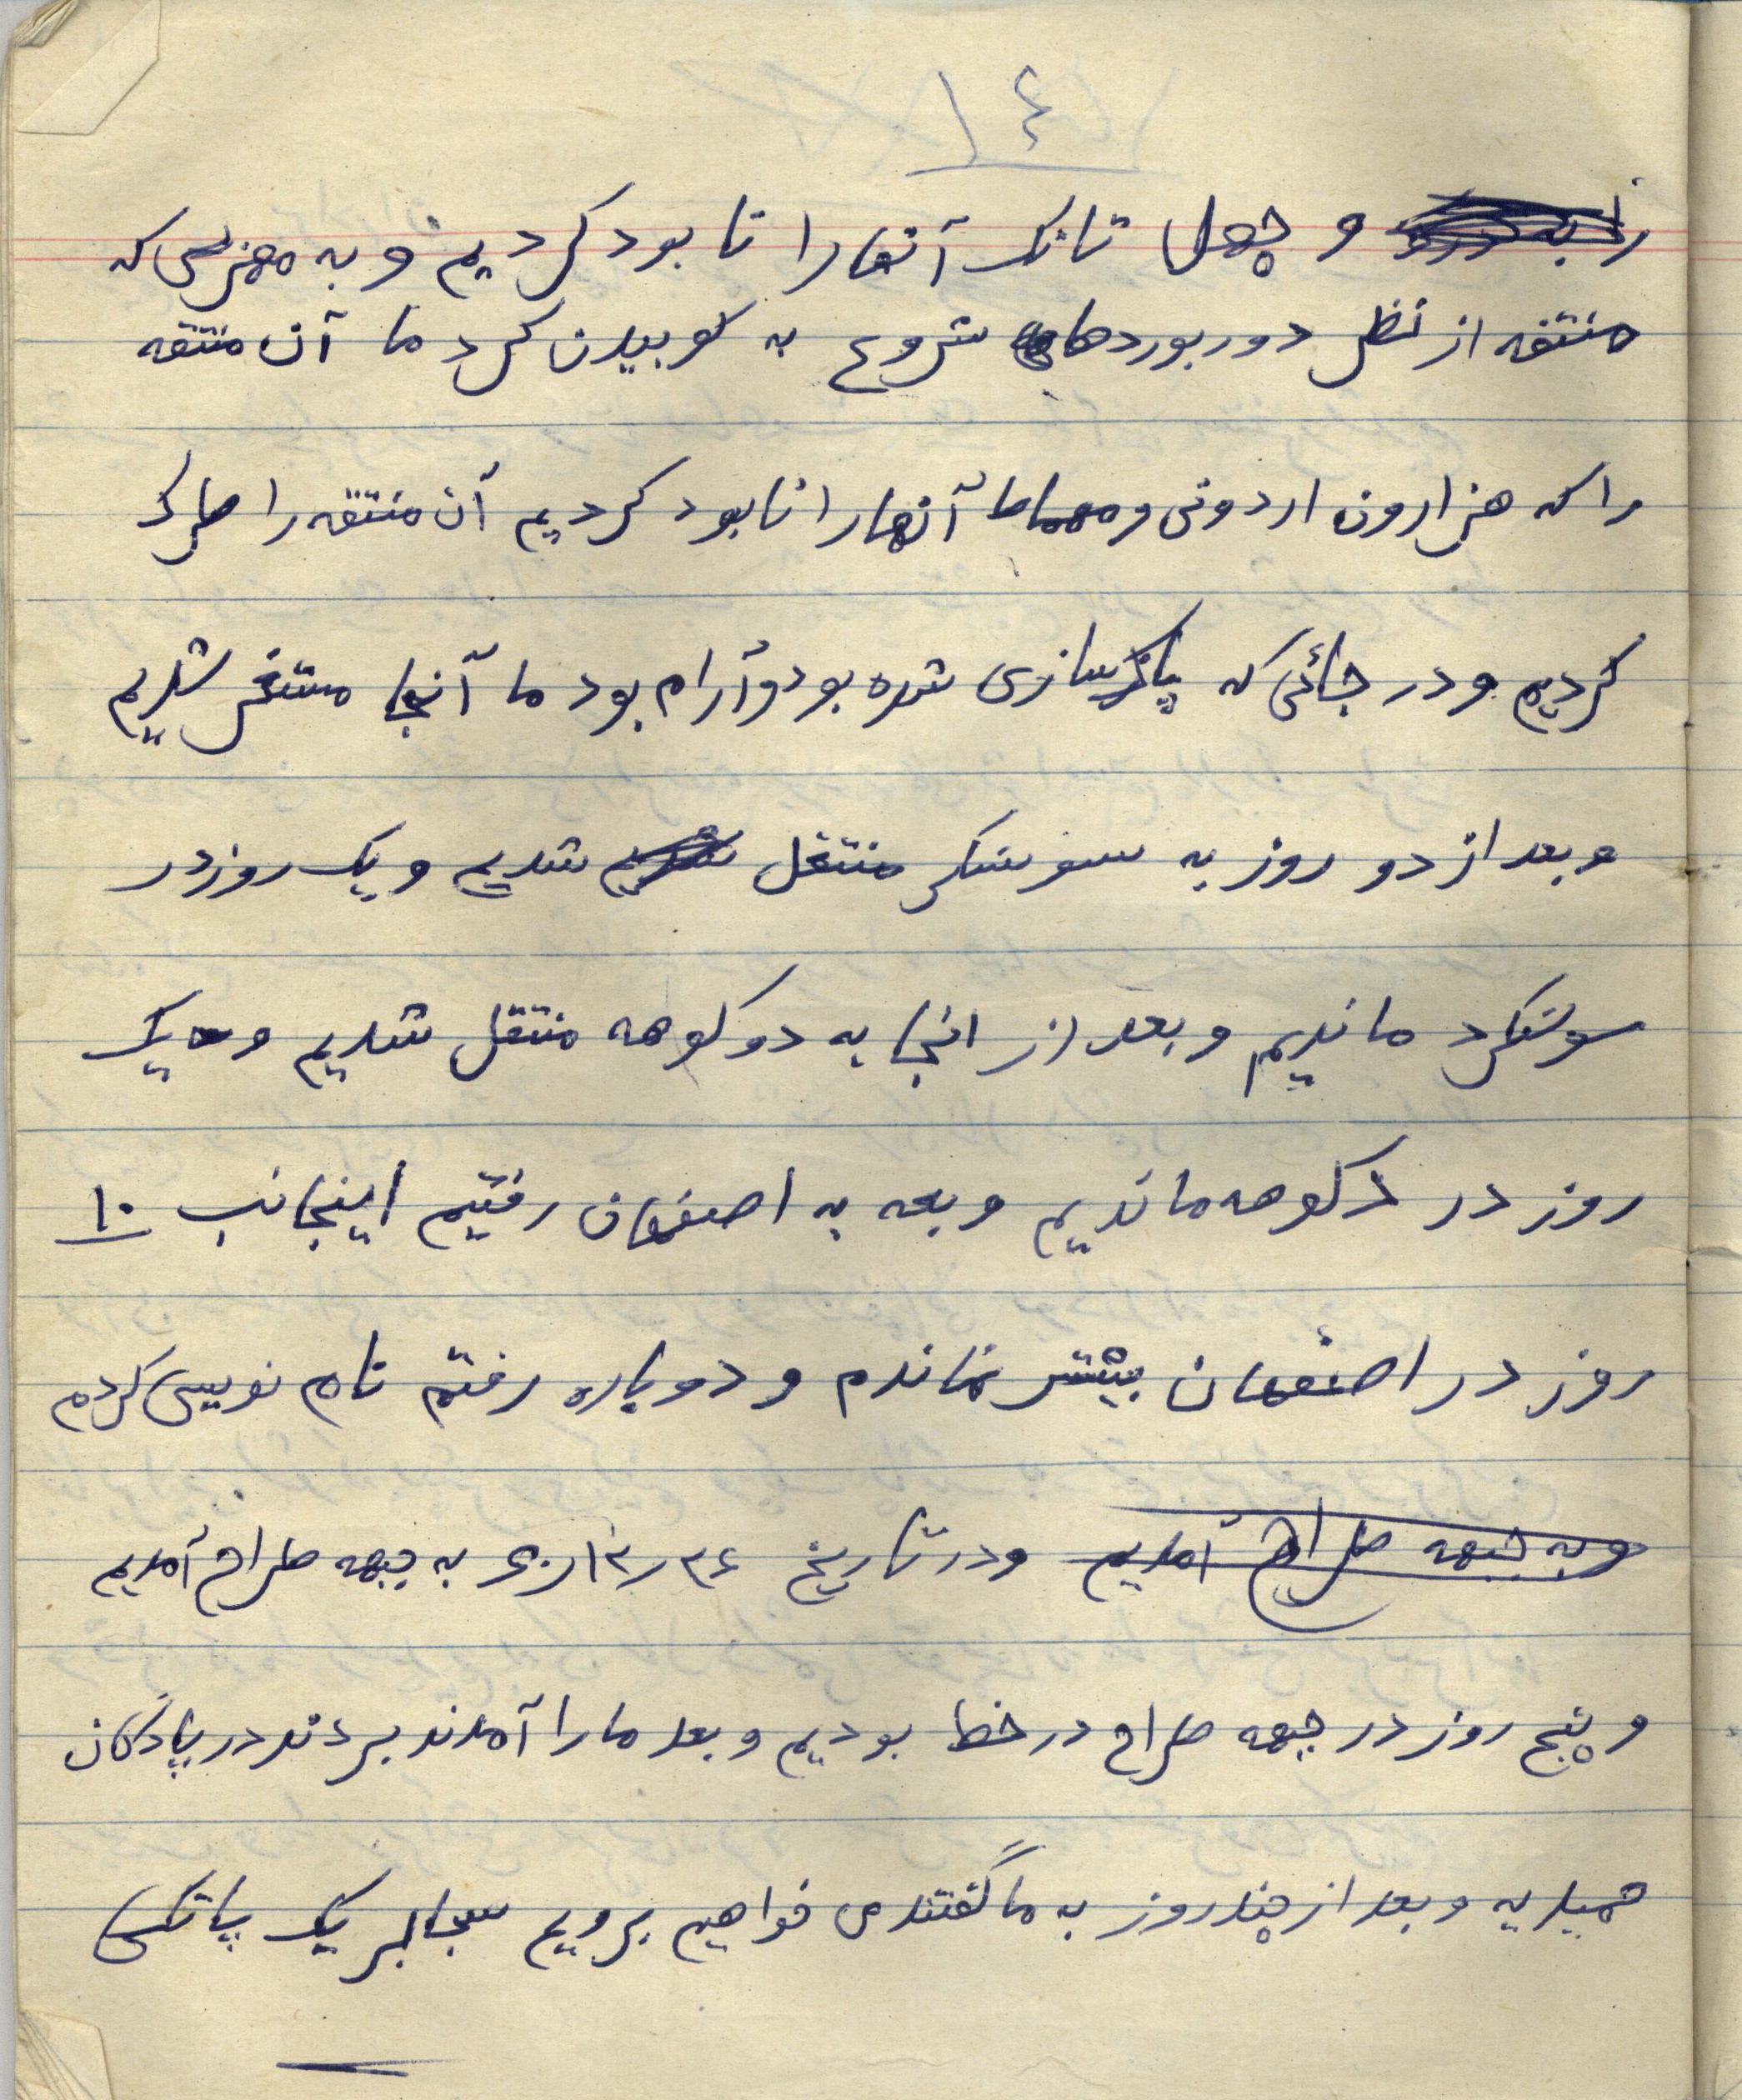 ١٤
و چهل تانک آنها را نابود کردیم و به مهزسی که
منتقه از نظر دور بوردهای شروع به کوبیدن کرد ما آن منتقه
را که هزارون اردونی و مهماما آنها را نابود کردیم آن منتقه را
کردیم و در جائی که پاکسازی شده بود و آرام بود ما آنجا مستقر شدیم
و بعد از دو روز به سوسنگر منتقل شدیم و یک روز در
سوسنگرد ماندیم و بعد از انجا به دو کوهه منتقل شدیم و یک
روز در دکوهه ماندیم و بعه به اصفهان رفتیم اینجانب ۱۰
روز در اصفهان بیشتر نماندم و دوباره رفتم نام نویسی کردم
و به جبهه طراح آمدیم و در تاریخ به جبهه طراح آمدیم
و پنج روز در جبهه طراح در خط بودیم و بعد ما را آمدند بردند در پادگان
حمیدیه و بعد از چند روز به ما گفتند می خواهیم برویم سجابر یک پاتکی